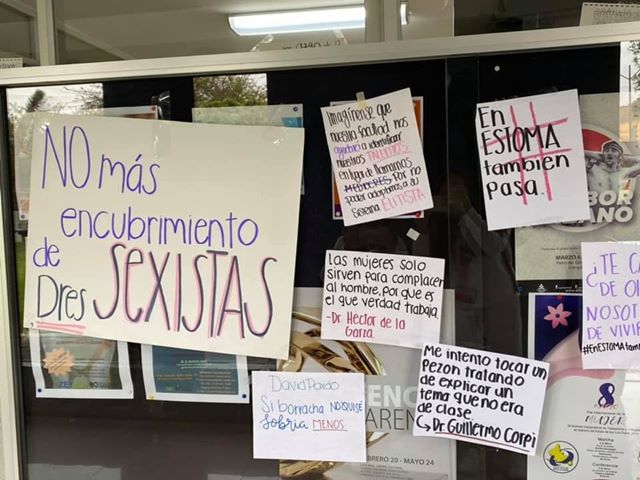 NO más
encubrimiento
de
Dres SEXISTAS
Imagínense que
nuestra facultad nos
ayudará a identificar
nuestros TALENTOS
en lugar de llamarnos
MEDIOCRES por no
poder adaptarnos a su
sistema ELITISTA
En
ESTOMA
también
pasa.
#
Las mujeres solo
sirven para complacer
al hombre, porque es
el que verdad trabaja.
- Dr. Héctor de la
Garza.
Me intento tocar un
Pezon tratando
de explicar un
tema que no era
de clase.
Dr. Guillermo Corpi
David Pardo
Si borracha NO QUISE
Sobria MENOS.
¿TE CA
DE O
NOSOT
DE VIVI
#EnESTOMAtam
FEBRERO 20 - MAYO 24
8
MUJER
Marcha
Conferencia